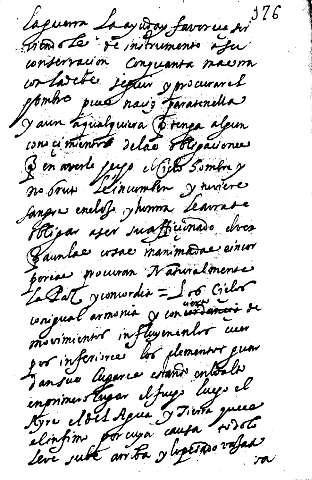 376
la guerra la ayuda y favorece sir
viendole de instrumento a su
conservacion con quanta maior
con la debe seguir y procurar el
hombre pues nacio para tenella
y aun aqualquiera q tenga algun
conocimiento de las obligaciones
q en averle hecho el cielo hombre y
no bruto le incumben y tuviere
sangre en el ojo y honra le avra de
obligar a ser su afficionado si ven
q aun las cosas inanimadas e incor
poreas procuran naturalmente
la Paz y concordia = Los Cielos
con igual armonia y concordancia de
movimientos influyen en los cuer
pos inferiores los elementos guar
dan sus lugares estando en
en primer lugar el fuego luego el
Ayre el del Agua y Tierra que es
el infimo por cuya causa todo lo
leve sube arriba y lo pesado vasa